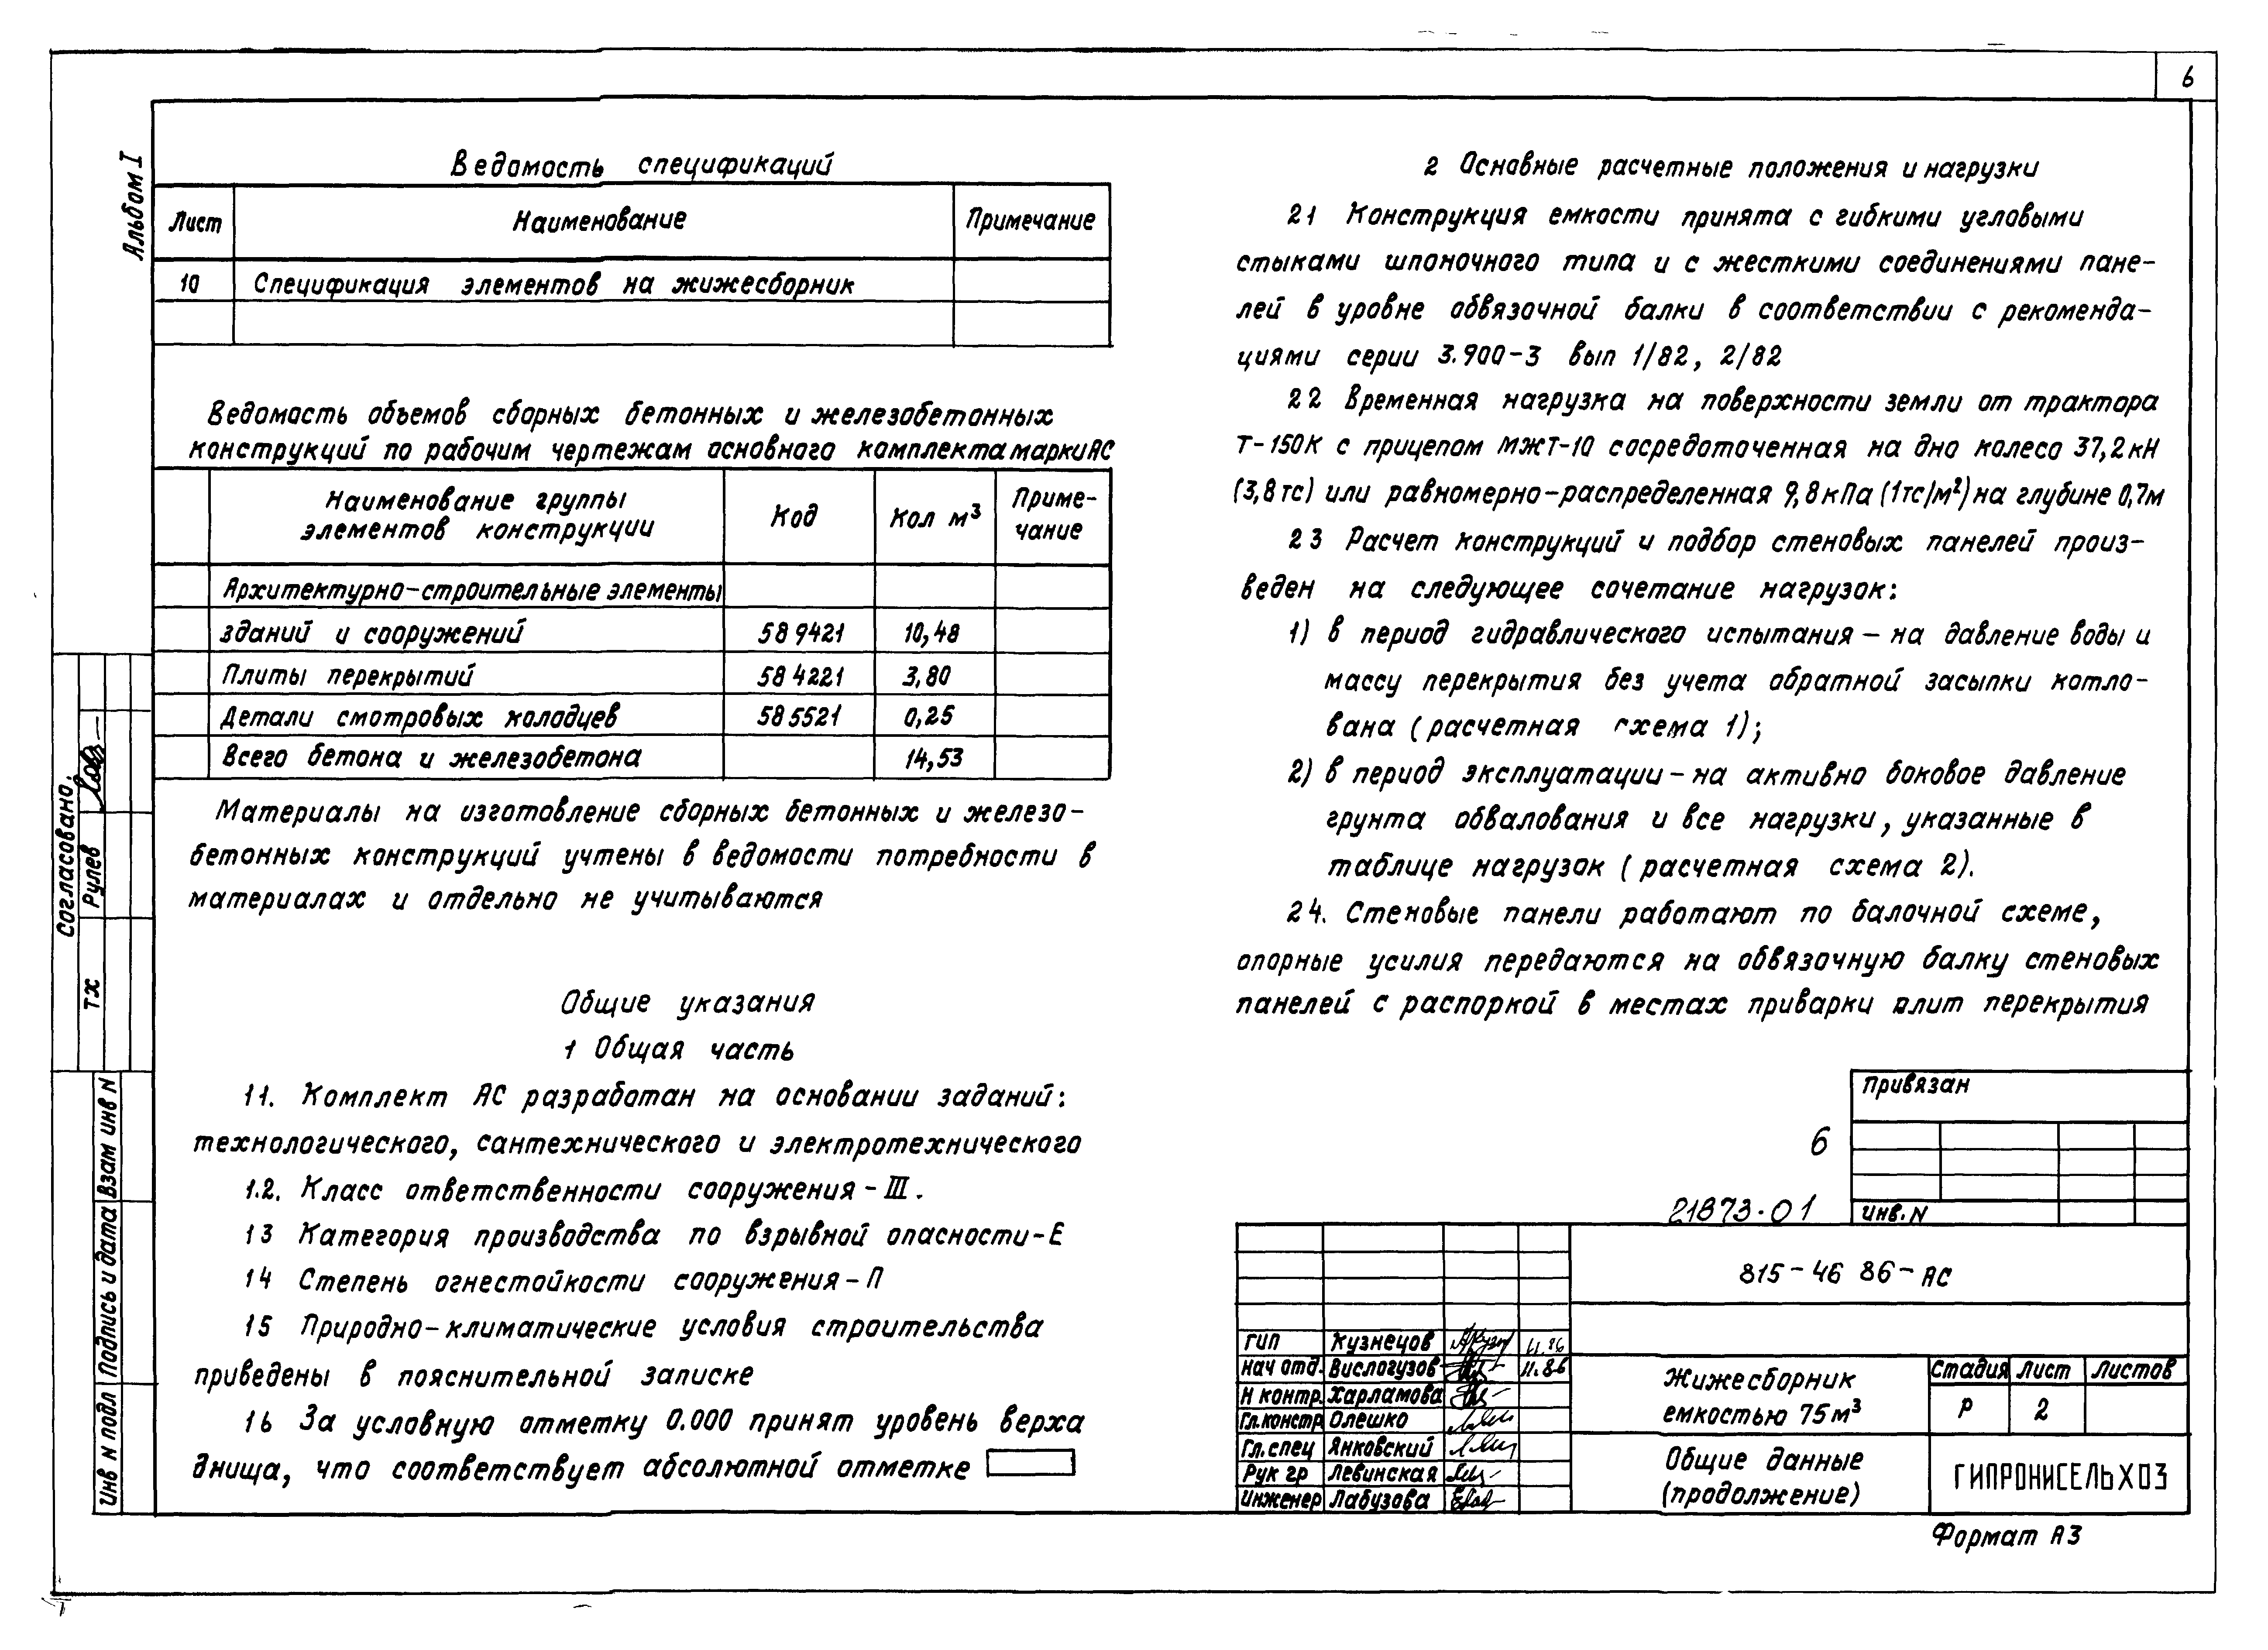 6
Альбом I
Ведомость спецификаций
Лист Наименование Примечание
10 Спецификация элементов на жижесборник
Ведомость объемов сборных бетонных и железобетонных
конструкций по рабочим чертежам основного комплекта марки АС
Наименование группы элементов конструкции Код Кол м³ Приме-чание
Архитектурно-строительные элементы
зданий и сооружений 58 9421 10,48
Плиты перекрытий 58 4221 3,80
Детали смотровых колодцев 58 5521 0,25
Всего бетона и железобетона 14,53
Материалы на изготовление сборных бетонных и железо-
бетонных конструкций учтены в ведомости потребности в
материалах и отдельно не учитываются
Общие указания
1 Общая часть
11. Комплект АС разработан на основании заданий:
технологического, сантехнического и электротехнического
1.2. Класс ответственности сооружения - III.
13 Категория производства по взрывной опасности-Е
14 Степень огнестойкости сооружения-П
15 Природно-климатические условия строительства
приведены в пояснительной записке
16 За условную отметку 0.000 принят уровень верха
днища, что соответствует абсолютной отметке
2 Основные расчетные положения и нагрузки
21 Конструкция емкости принята с гибкими угловыми
стыками шпоночного типа и с жесткими соединениями пане-
лей в уровне обвязочной балки в соответствии с рекоменда-
циями серии 3.900-3 вып 1/82, 2/82
22 Временная нагрузка на поверхности земли от трактора
Т-150К с прицепом МЖТ-10 сосредоточенная на дно колесо 37,2 кН
(3,8 тс) или равномерно-распределенная 9,8 кПа (1тс/м²) на глубине 0,7м
23 Расчет конструкций и подбор стеновых панелей произ-
веден на следующее сочетание нагрузок:
1) в период гидравлического испытания - на давление воды и
массу перекрытия без учета обратной засыпки котло-
вана (расчетная схема 1);
2) в период эксплуатации - на активно боковое давление
грунта обвалования и все нагрузки, указанные в
таблице нагрузок (расчетная схема 2).
24. Стеновые панели работают по балочной схеме,
опорные усилия передаются на обвязочную балку стеновых
панелей с распоркой в местах приварки плит перекрытия
Согласовано:
ТХ Рулев
Взам инв N
Подпись и дата
Инв N подл
Привязан
6
21873-01
Инв. N
815-46 86-АС
ГИП Кузнецов 11.86
Нач отд. Вислогузов 11.86
Н контр. Харламова
Гл.констр Олешко
Гл.спец Янковский
Рук гр Левинская
Инженер Лабузова
Жижесборник
емкостью 75м³
Стадия Лист Листов
Р 2
Общие данные
(продолжение)
ГИПРОНИСЕЛЬХОЗ
Формат А3